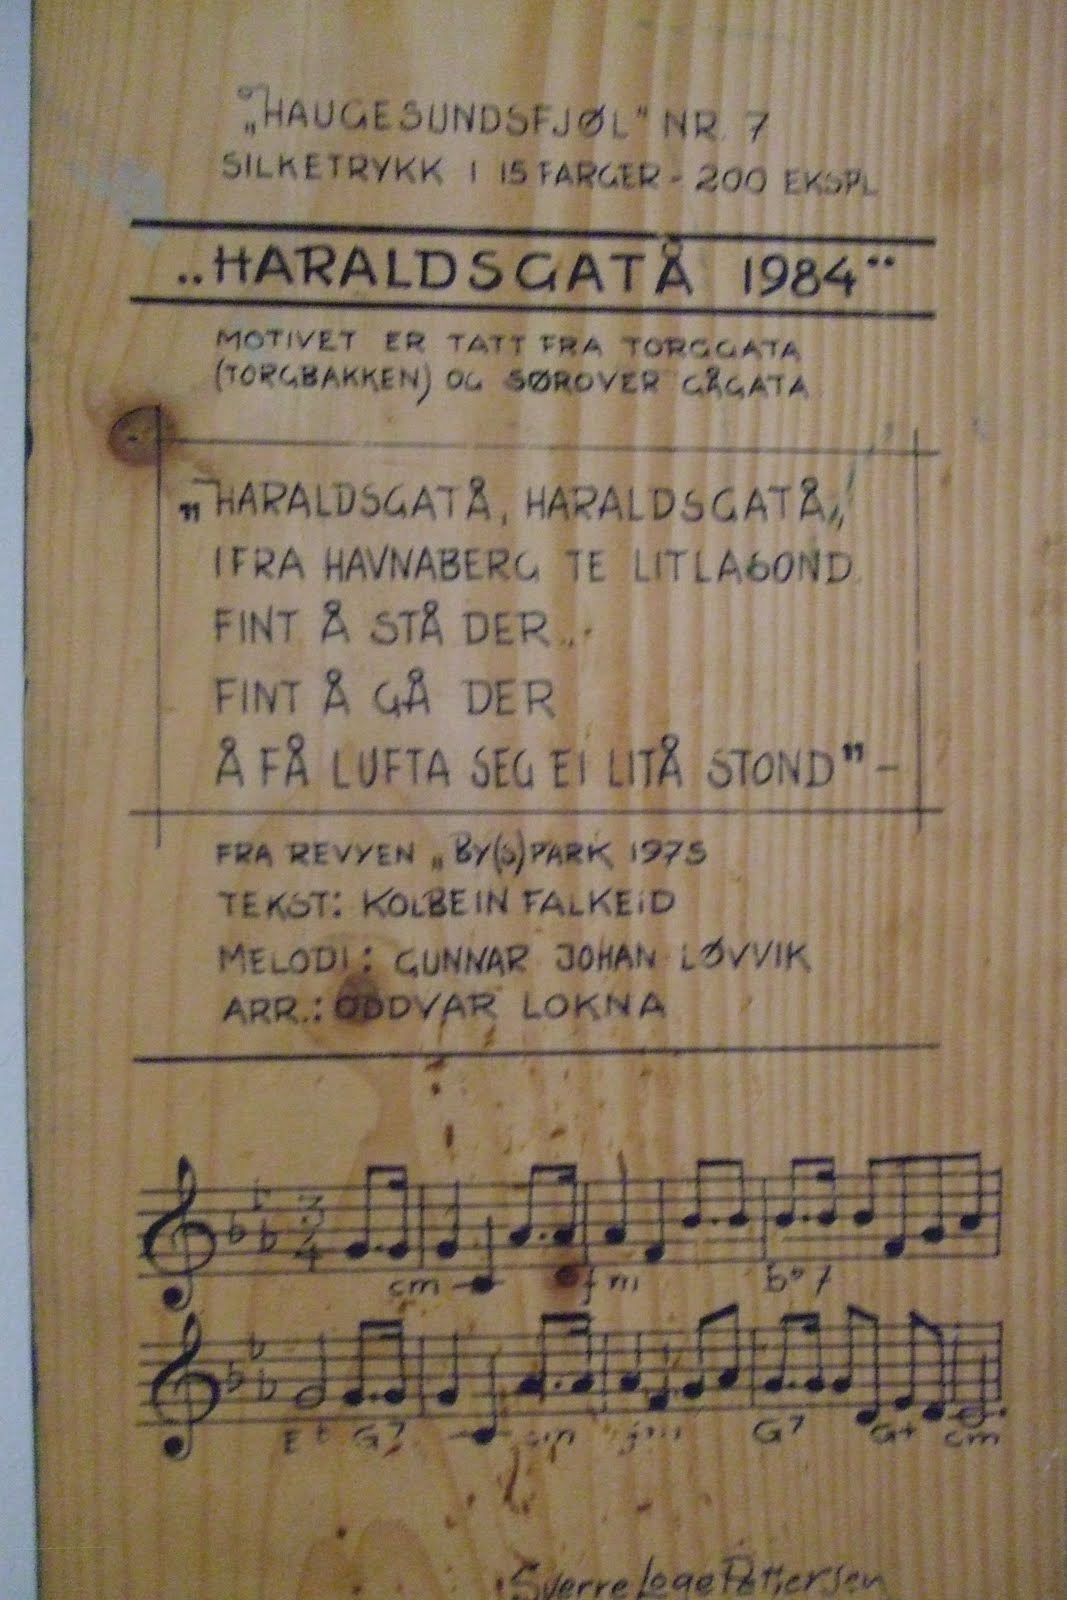 „HAUGESUNDSFJØL" NR. 7
SILKETRYKK I 15 FARGER - 200 EKSPL
„HARALDSGATÅ 1984"
MOTIVET ER TATT FRA TORGGATA
(TORGBAKKEN) OG SØROVER GÅGATA
"HARALDSGATÅ, HARALDSGATÅ,,
IFRA HAVNABERG TE LITLASOND
FINT Å STÅ DER...
FINT Å GÅ DER
Å FÅ LUFTA SEG EI LITÅ STOND" -
FRA REVYEN „BY(S)PARK 1975
TEKST: KOLBEIN FALKEID
MELODI: GUNNAR JOHAN LØVVIK
ARR.: ODDVAR LOKNA
3/4
cm fm
Eb G7 G7 G+ cm
Sverre Loge Pettersen